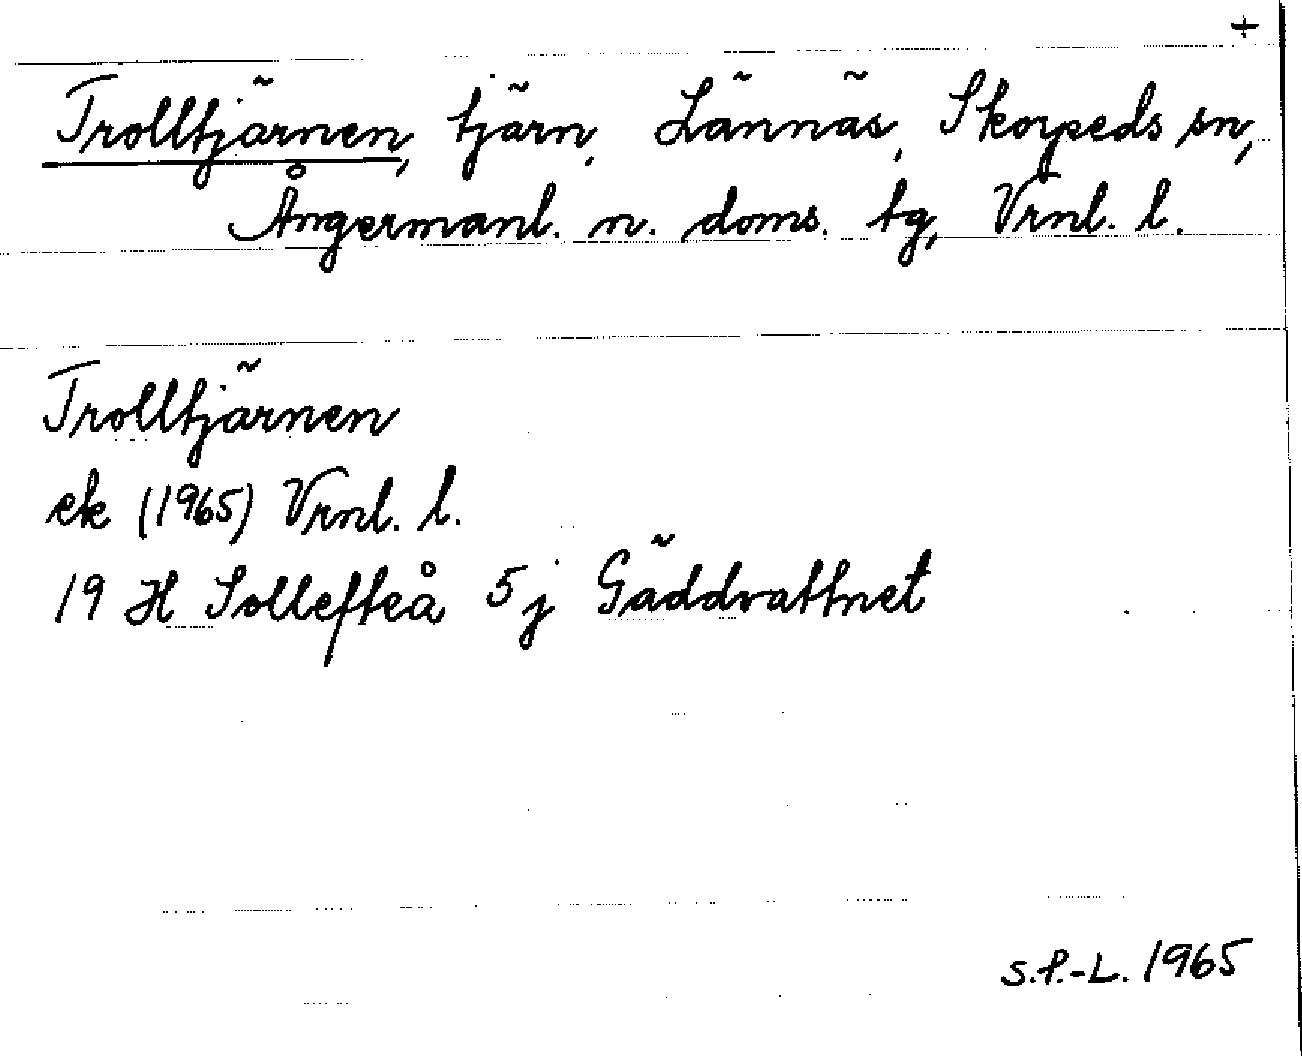 +
Trolltjärnen, tjärn, Lännäs, Skorpeds sn,
Ångermanl. n. doms. tg, Vrnl. l.
Trolltjärnen
ek (1965) Vrnl. l.
19 H Sollefteå 5 j Gäddvattnet
S.P.-L. 1965